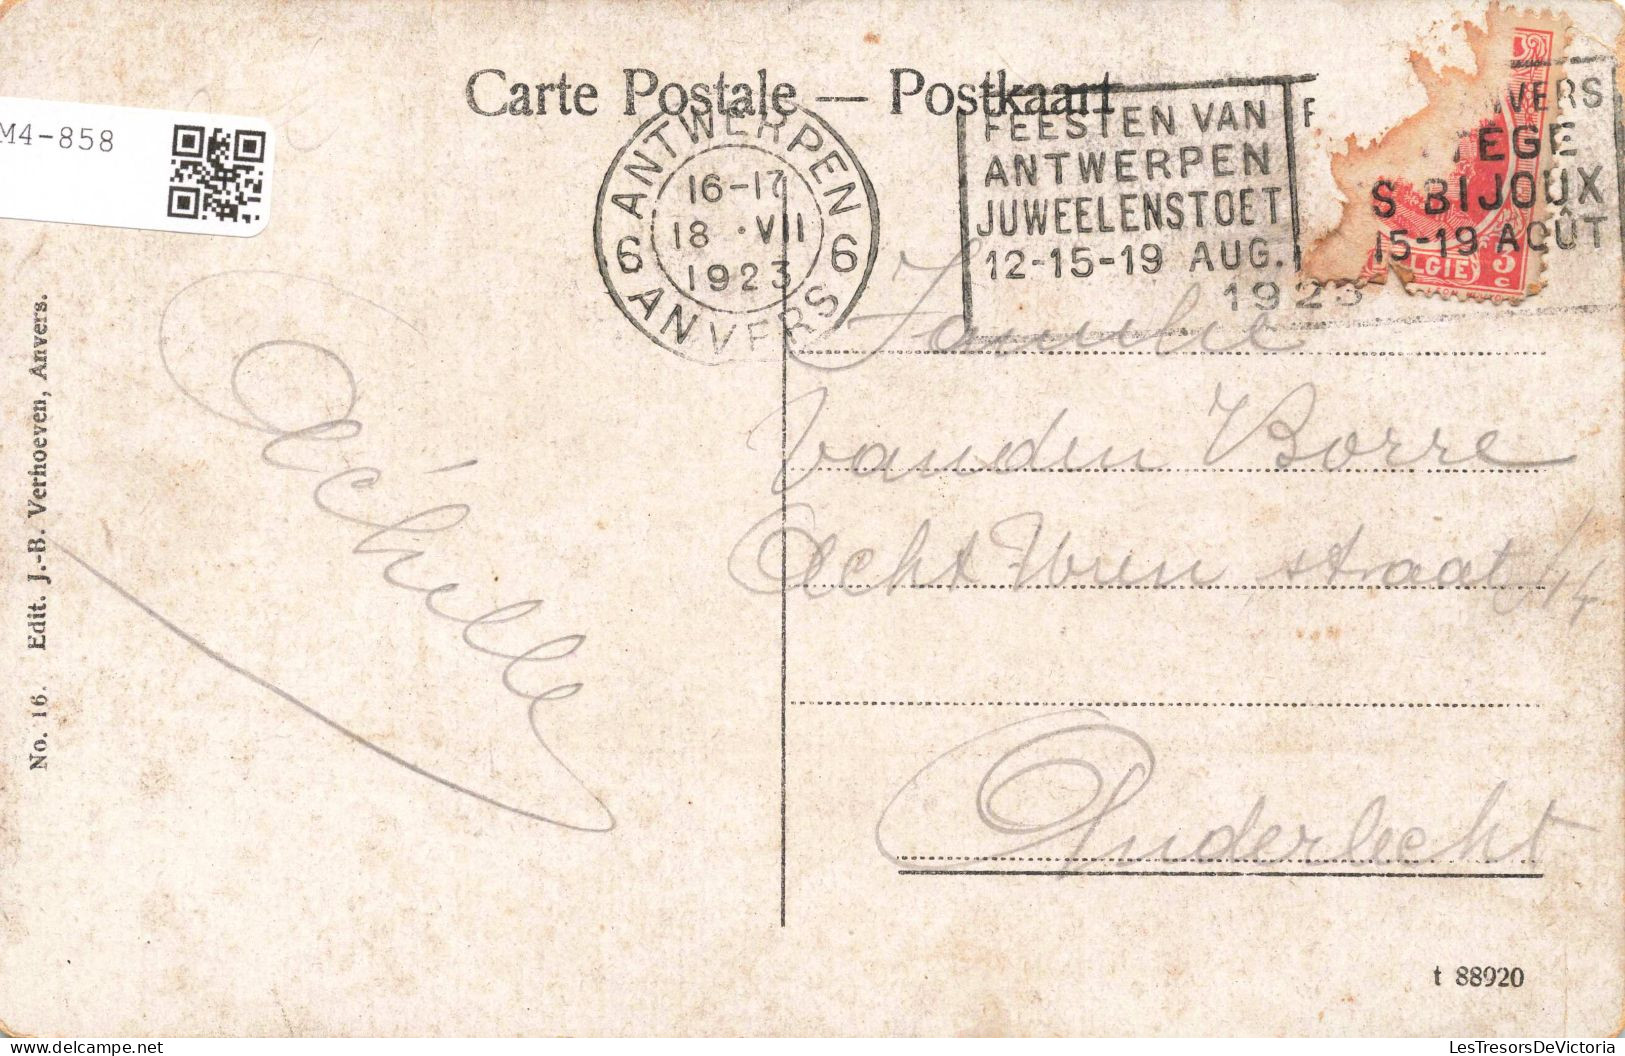 Carte Postale — Postkaart
M4-858
6 ANTWERPEN 6
16-17
18 • VII
1923
ANVERS
FEESTEN VAN
ANTWERPEN
JUWEELENSTOET
12-15-19 AUG.
1923
F
NVERS
TEGE
S BIJOUX
15-19 AOÛT
LGIE
3
c
No. 16. Edit. J.-B. Verhoeven, Anvers.
Achille
Familie
Vanden Borre
Acht Uren straat 14
Anderlecht
t 88920
LesTresorsDeVictoria